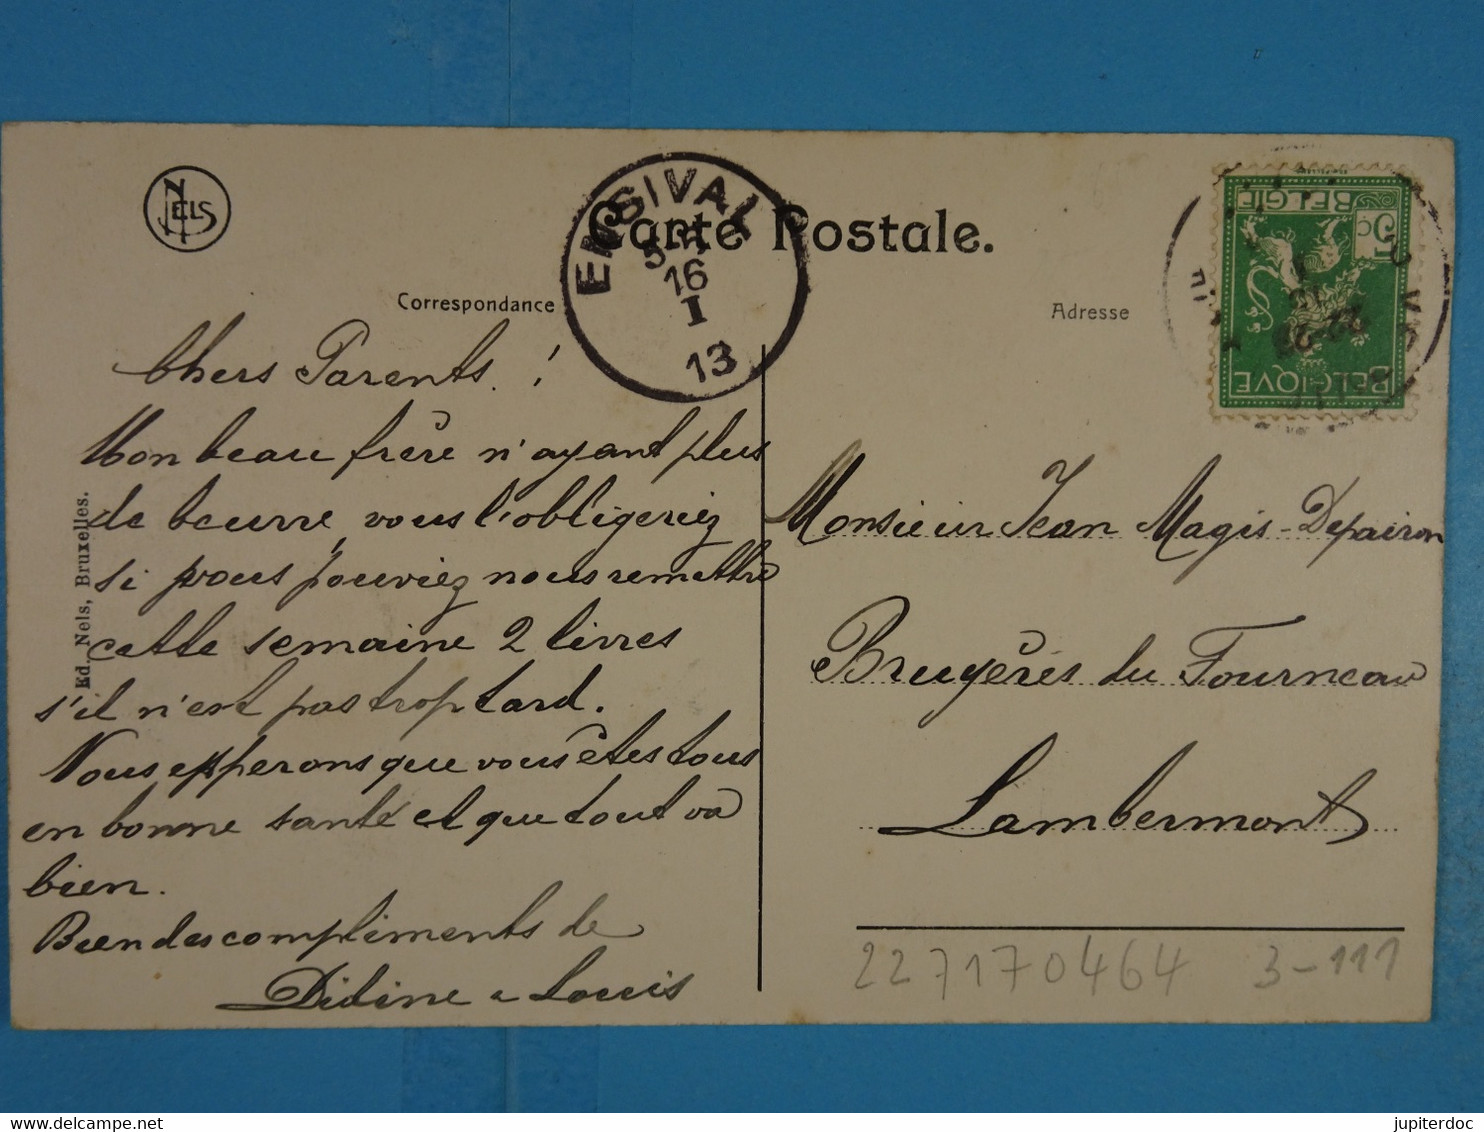 NELS
Carte Postale.
ENSIVAL
16
I
13
Correspondance
Adresse
BELGIE
5c
BELGIQVE
Chers Parents !
Mon beau frère n'ayant plus
de beurre, vous l'obligeriez
si vous pouviez nous remettre
cette semaine 2 livres
s'il n'est pas trop tard.
Nous esperons que vous êtes tous
en bonne santé et que tout va
bien.
Bien des compliments de
Didine & Louis
Ed. Nels, Bruxelles.
Monsieur Jean Magis-Depairon
Bruyères du Fourneau
Lambermont
227170464 3-111
jupiterdoc